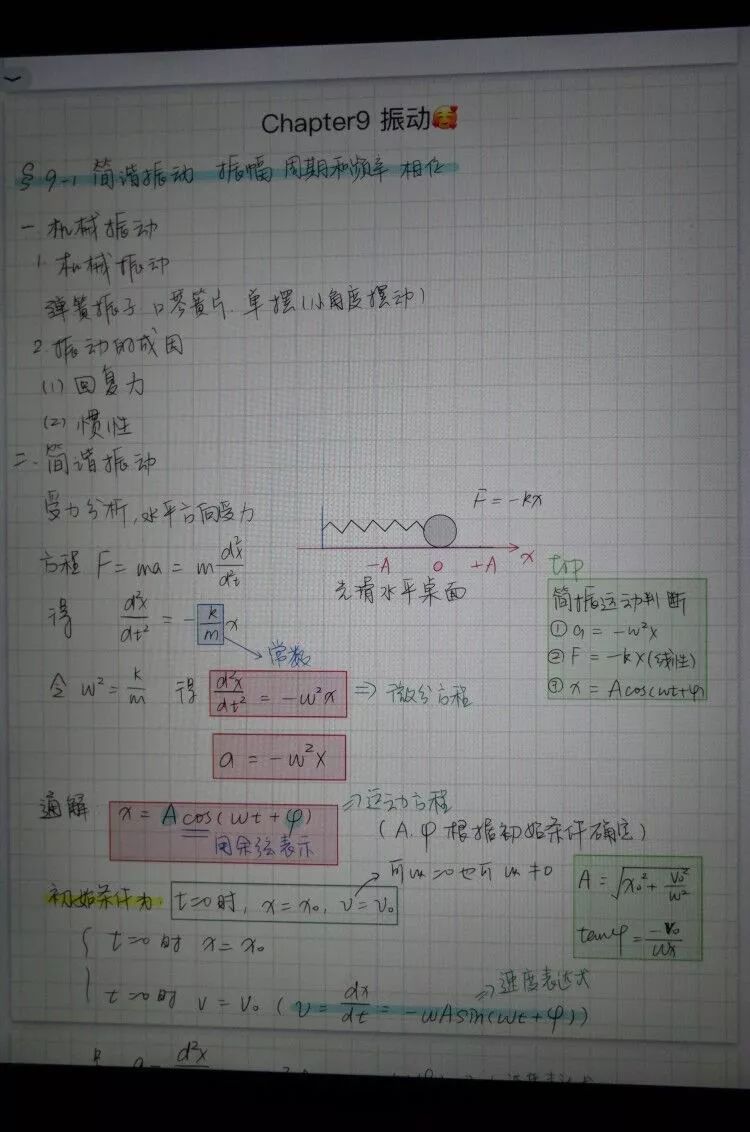 Chapter9 振动🥰
§ 9-1 简谐振动 振幅 周期和频率 相位
一 机械振动
1 机械振动
弹簧振子 口琴簧片. 单摆(小角度摆动)
2. 振动的成因
(1) 回复力
(2) 惯性
二. 简谐振动
受力分析, 水平方向受力
F = -kx
-A O +A x
光滑水平桌面
方程 F = ma = m d²x/d²t
得 d²x/dt² = - k/m x
常数
令 w² = k/m 得 d²x/dt² = -w²x => 微分方程
a = -w²x
top
简振运动判断
① a = -w²x
② F = -kx(线性)
③ x = Acos(wt+φ)
通解 x = Acos(wt+φ) => 运动方程
用余弦表示
(A.φ 根据初始条件确定)
初始条件为: t=0时, x=x₀, v=v₀
可以=0也可以≠0
A = √(x₀² + v₀²/w²)
tanφ = -v₀/wx
{ t=0时 x=x₀
t=0时 v=v₀ ( v = dx/dt = -wAsin(wt+φ))
=> 速度表达式
d²x